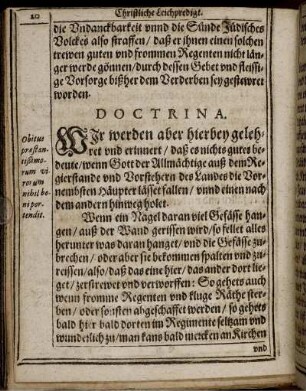 20
Christliche Leichpredigt.
die Vndanckbarkeit vnnd die Sünde Jüdisches
Volckes also straffen / daß er ihnen einen solchen
trewen guten vnd frommen Regenten nicht län-
ger werde gönnen / durch dessen Gebet vnd fleissi-
ge Vorsorge bißher dem Verderben sey gestewret
worden.
DOCTRINA.
Wir werden aber hierbey geleh-
ret vnd erinnert / daß es nichts gutes be-
deute / wenn Gott der Allmächtige auß dem Re-
gierstande vnd Vorstehern des Landes die Vor-
nembsten Häupter lässet fallen / vnnd einen nach
dem andern hinweg holet.
Obitus
præstan-
tissimo-
rum vi
rorum
nihil bo-
ni por-
tendit.
Wenn ein Nagel daran viel Gefässe han-
gen / auß der Wand gerissen wird / so fellet alles
herunter was daran hanget / vnd die Gefässe zu-
brechen / oder aber sie bekommen spalten vnd zu-
reissen / also / daß das eine hier / das ander dort lie-
get / zerstrewet vnd verworffen: So gehets auch
wenn fromme Regenten vnd kluge Räthe ster-
ben / oder sonsten abgeschaffet werden / so gehets
bald hier bald dorten im Regimente seltzam vnd
wunderlich zu / man kans bald mercken an Kirchen
vnd